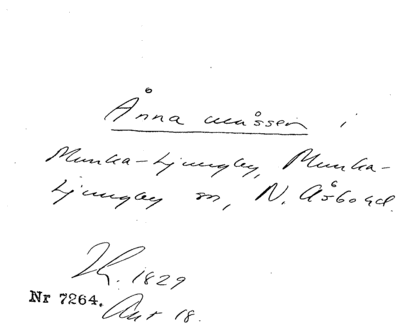 Ånna måssen i
Munka-Ljungby, Munka-
Ljungby sn, N. Åsbo hd.
1829
Nr 7264. Akt 18.